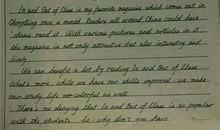 In and Out of Class is my favorite magazine which comes out in
Chongqing once a month. Readers all around China could have
chance read it. With various pictures and articles in it
the magazine is not only attractive but also interesting and
lively.
We can benefit a lot by reading In and Out of Class.
What's more, while we have our skills improved, we make
our study life so colorful as well.
There's no denying that In and Out of Class is so popular
with the students. So why don't you have